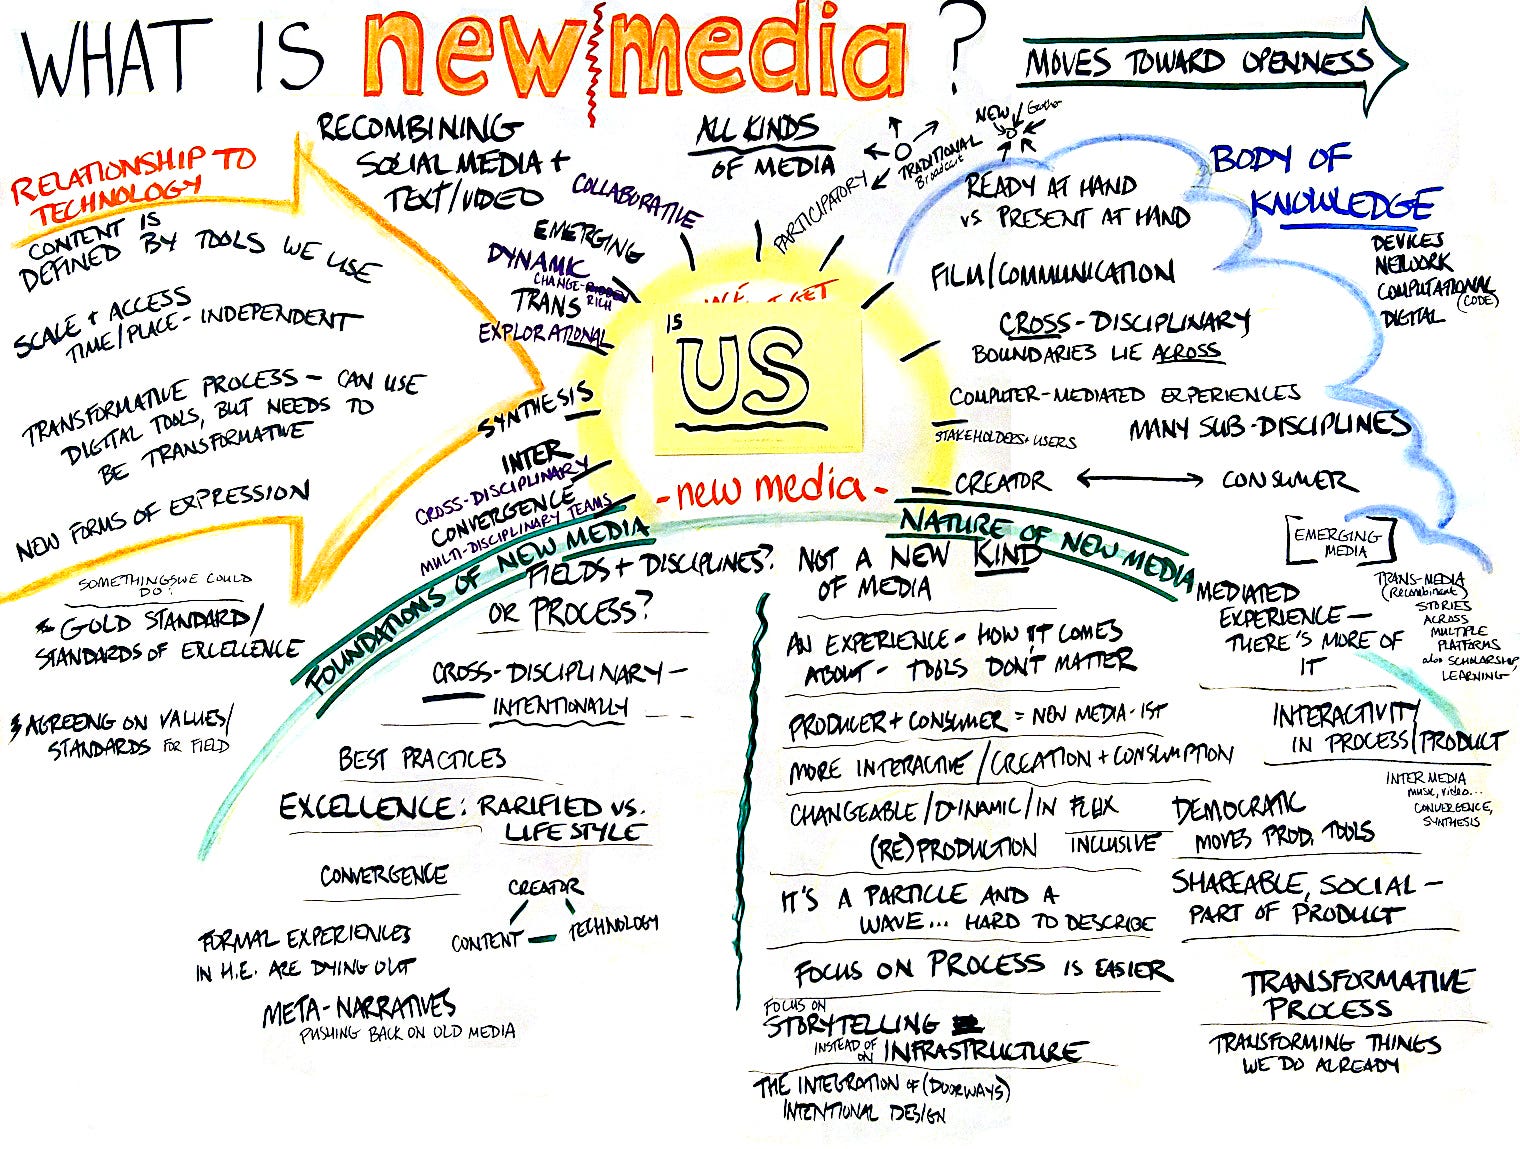 WHAT IS new media ?
MOVES TOWARD OPENNESS
RECOMBINING
SOCIAL MEDIA +
TEXT/VIDEO
ALL KINDS
OF MEDIA
PARTICIPATORY
TRADITIONAL
Broadcast
NEW
RELATIONSHIP TO
TECHNOLOGY
CONTENT IS
DEFINED BY TOOLS WE USE
SCALE + ACCESS
TIME/PLACE-INDEPENDENT
TRANSFORMATIVE PROCESS - CAN USE
DIGITAL TOOLS, BUT NEEDS TO
BE TRANSFORMATIVE
NEW FORMS OF EXPRESSION
COLLABORATIVE
EMERGING
DYNAMIC
CHANGE-RIDDEN
RICH
TRANS
EXPLORATIONAL
SYNTHESIS
INTER
CROSS-DISCIPLINARY
CONVERGENCE
MULTI-DISCIPLINARY TEAMS
IS
US
- new media -
BODY OF
KNOWLEDGE
DEVICES
NETWORK
COMPUTATIONAL
(CODE)
DIGITAL
READY AT HAND
VS PRESENT AT HAND
FILM/COMMUNICATION
CROSS-DISCIPLINARY
BOUNDARIES LIE ACROSS
COMPUTER-MEDIATED EXPERIENCES
STAKEHOLDERS + USERS
MANY SUB-DISCIPLINES
CREATOR
CONSUMER
EMERGING
MEDIA
SOMETHINGS WE COULD
DO:
GOLD STANDARD/
STANDARDS OF EXCELLENCE
AGREEING ON VALUES/
STANDARDS FOR FIELD
FOUNDATIONS OF NEW MEDIA
FIELDS + DISCIPLINES?
OR PROCESS?
CROSS-DISCIPLINARY -
INTENTIONALLY
BEST PRACTICES
EXCELLENCE: RARIFIED VS.
LIFESTYLE
CONVERGENCE
CREATOR
CONTENT - TECHNOLOGY
FORMAL EXPERIENCES
IN H.E. ARE DYING OUT
META-NARRATIVES
PUSHING BACK ON OLD MEDIA
NATURE OF NEW MEDIA
NOT A NEW KIND
OF MEDIA
AN EXPERIENCE - HOW IT COMES
ABOUT - TOOLS DON'T MATTER
PRODUCER + CONSUMER = NEW MEDIA-IST
MORE INTERACTIVE/CREATION + CONSUMPTION
CHANGEABLE/DYNAMIC/IN FLUX
(RE)PRODUCTION INCLUSIVE
IT'S A PARTICLE AND A
WAVE... HARD TO DESCRIBE
FOCUS ON PROCESS IS EASIER
FOCUS ON
STORYTELLING
INSTEAD OF
ON INFRASTRUCTURE
THE INTEGRATION OF (DOORWAYS)
INTENTIONAL DESIGN
MEDIATED
EXPERIENCE -
THERE'S MORE OF
IT
TRANS-MEDIA
(Recombinant)
STORIES
ACROSS
MULTIPLE
PLATFORMS
also SCHOLARSHIP,
LEARNING
INTERACTIVITY
IN PROCESS/PRODUCT
INTERMEDIA
music, video...
CONVERGENCE,
SYNTHESIS
DEMOCRATIC
MOVES PROD. TOOLS
SHAREABLE, SOCIAL -
PART OF PRODUCT
TRANSFORMATIVE
PROCESS
TRANSFORMING THINGS
WE DO ALREADY